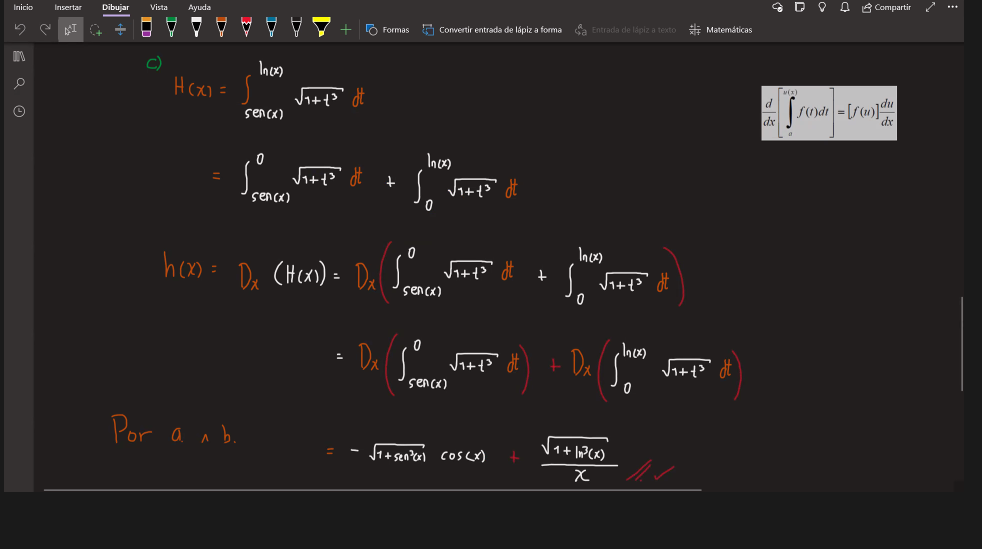 Inicio Insertar Dibujar Vista Ayuda
Compartir
Formas Convertir entrada de lápiz a forma Entrada de lápiz a texto Matemáticas
c)
H(x) = ∫_{sen(x)}^{ln(x)} √(1+t³) dt
d/dx [∫_a^{u(x)} f(t)dt] = [f(u)] du/dx
= ∫_{sen(x)}^{0} √(1+t³) dt + ∫_{0}^{ln(x)} √(1+t³) dt
h(x) = Dx (H(x)) = Dx (∫_{sen(x)}^{0} √(1+t³) dt + ∫_{0}^{ln(x)} √(1+t³) dt)
= Dx (∫_{sen(x)}^{0} √(1+t³) dt) + Dx (∫_{0}^{ln(x)} √(1+t³) dt)
Por a ∧ b.
= - √(1+sen³(x)) cos(x) + √(1+ln³(x)) / x